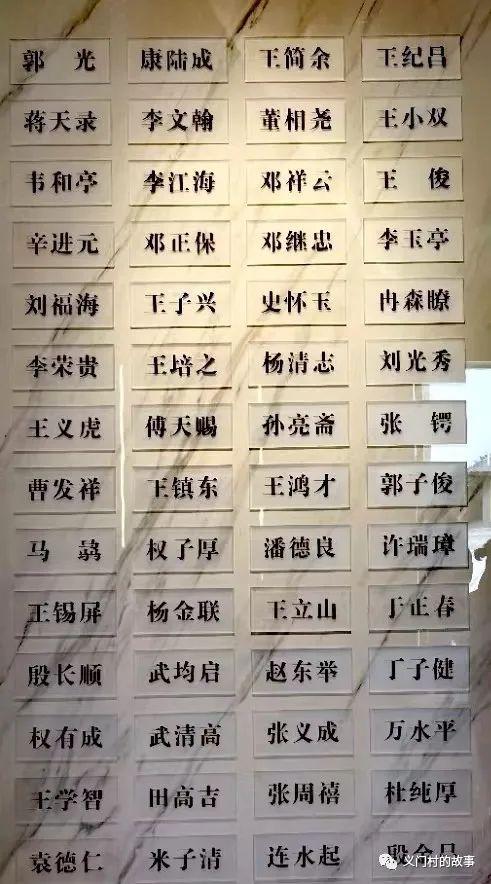 郭 光 康陆成 王简余 王纪昌
蒋天录 李文翰 董相尧 王小双
韦和亭 李江海 邓祥云 王 俊
辛进元 邓正保 邓继忠 李玉亭
刘福海 王子兴 史怀玉 冉森瞭
李荣贵 王培之 杨清志 刘光秀
王义虎 傅天赐 孙亮斋 张 锷
曹发祥 王镇东 王鸿才 郭子俊
马 权子厚 潘德良 许瑞璋
王锡屏 杨金联 王立山 于正春
殷长顺 武均启 赵东举 丁子健
权有成 武清高 张义成 万水平
王学智 田高吉 张周禧 杜纯厚
袁德仁 米子清 连水起
义门村的故事